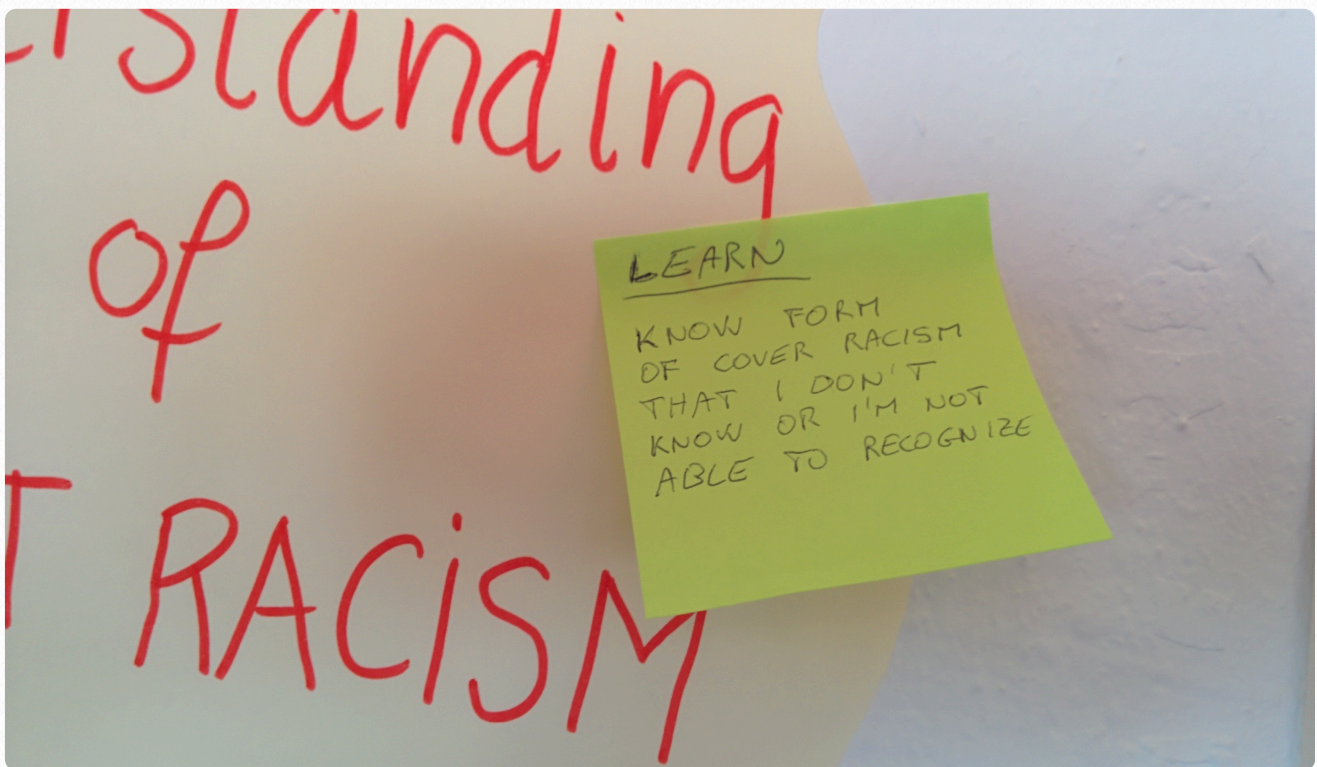 erstanding
of
T RACISM
LEARN
KNOW FORM
OF COVER RACISM
THAT I DON'T
KNOW OR I'M NOT
ABLE TO RECOGNIZE